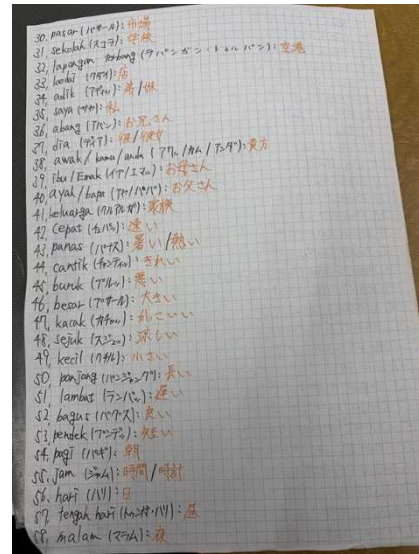 30. pasar (パサール): 市場
31. sekolah (スコラ): 学校
32. lapangan terbang (ラパンガン・トゥルバン): 空港
33. kedai (クダイ): 店
34. adik (アディッ): 弟/妹
35. saya (サヤ): 私
36. abang (アバン): お兄さん
37. dia (ディア): 彼/彼女
38. awak/kamu/anda (アワッ/カム/アンダ): 貴方
39. ibu/Emak (イブ/エマッ): お母さん
40. ayah/bapa (アヤ/パパ): お父さん
41. keluarga (クルアルガ): 家族
42. cepat (チュパッ): 速い
43. panas (パナス): 暑い/熱い
44. cantik (チャンティッ): きれい
45. buruk (ブルッ): 悪い
46. besar (ブサール): 大きい
47. kacak (カチャッ): かっこいい
48. sejuk (スジュッ): 涼しい
49. kecil (クチル): 小さい
50. panjang (パンジャング): 長い
51. lambat (ランバッ): 遅い
52. bagus (バグース): 良い
53. pendek (ペンデッ): 短い
54. pagi (パギ): 朝
55. jam (ジャム): 時間/時計
56. hari (ハリ): 日
57. tengah hari (トゥンガ・ハリ): 昼
58. malam (マラム): 夜